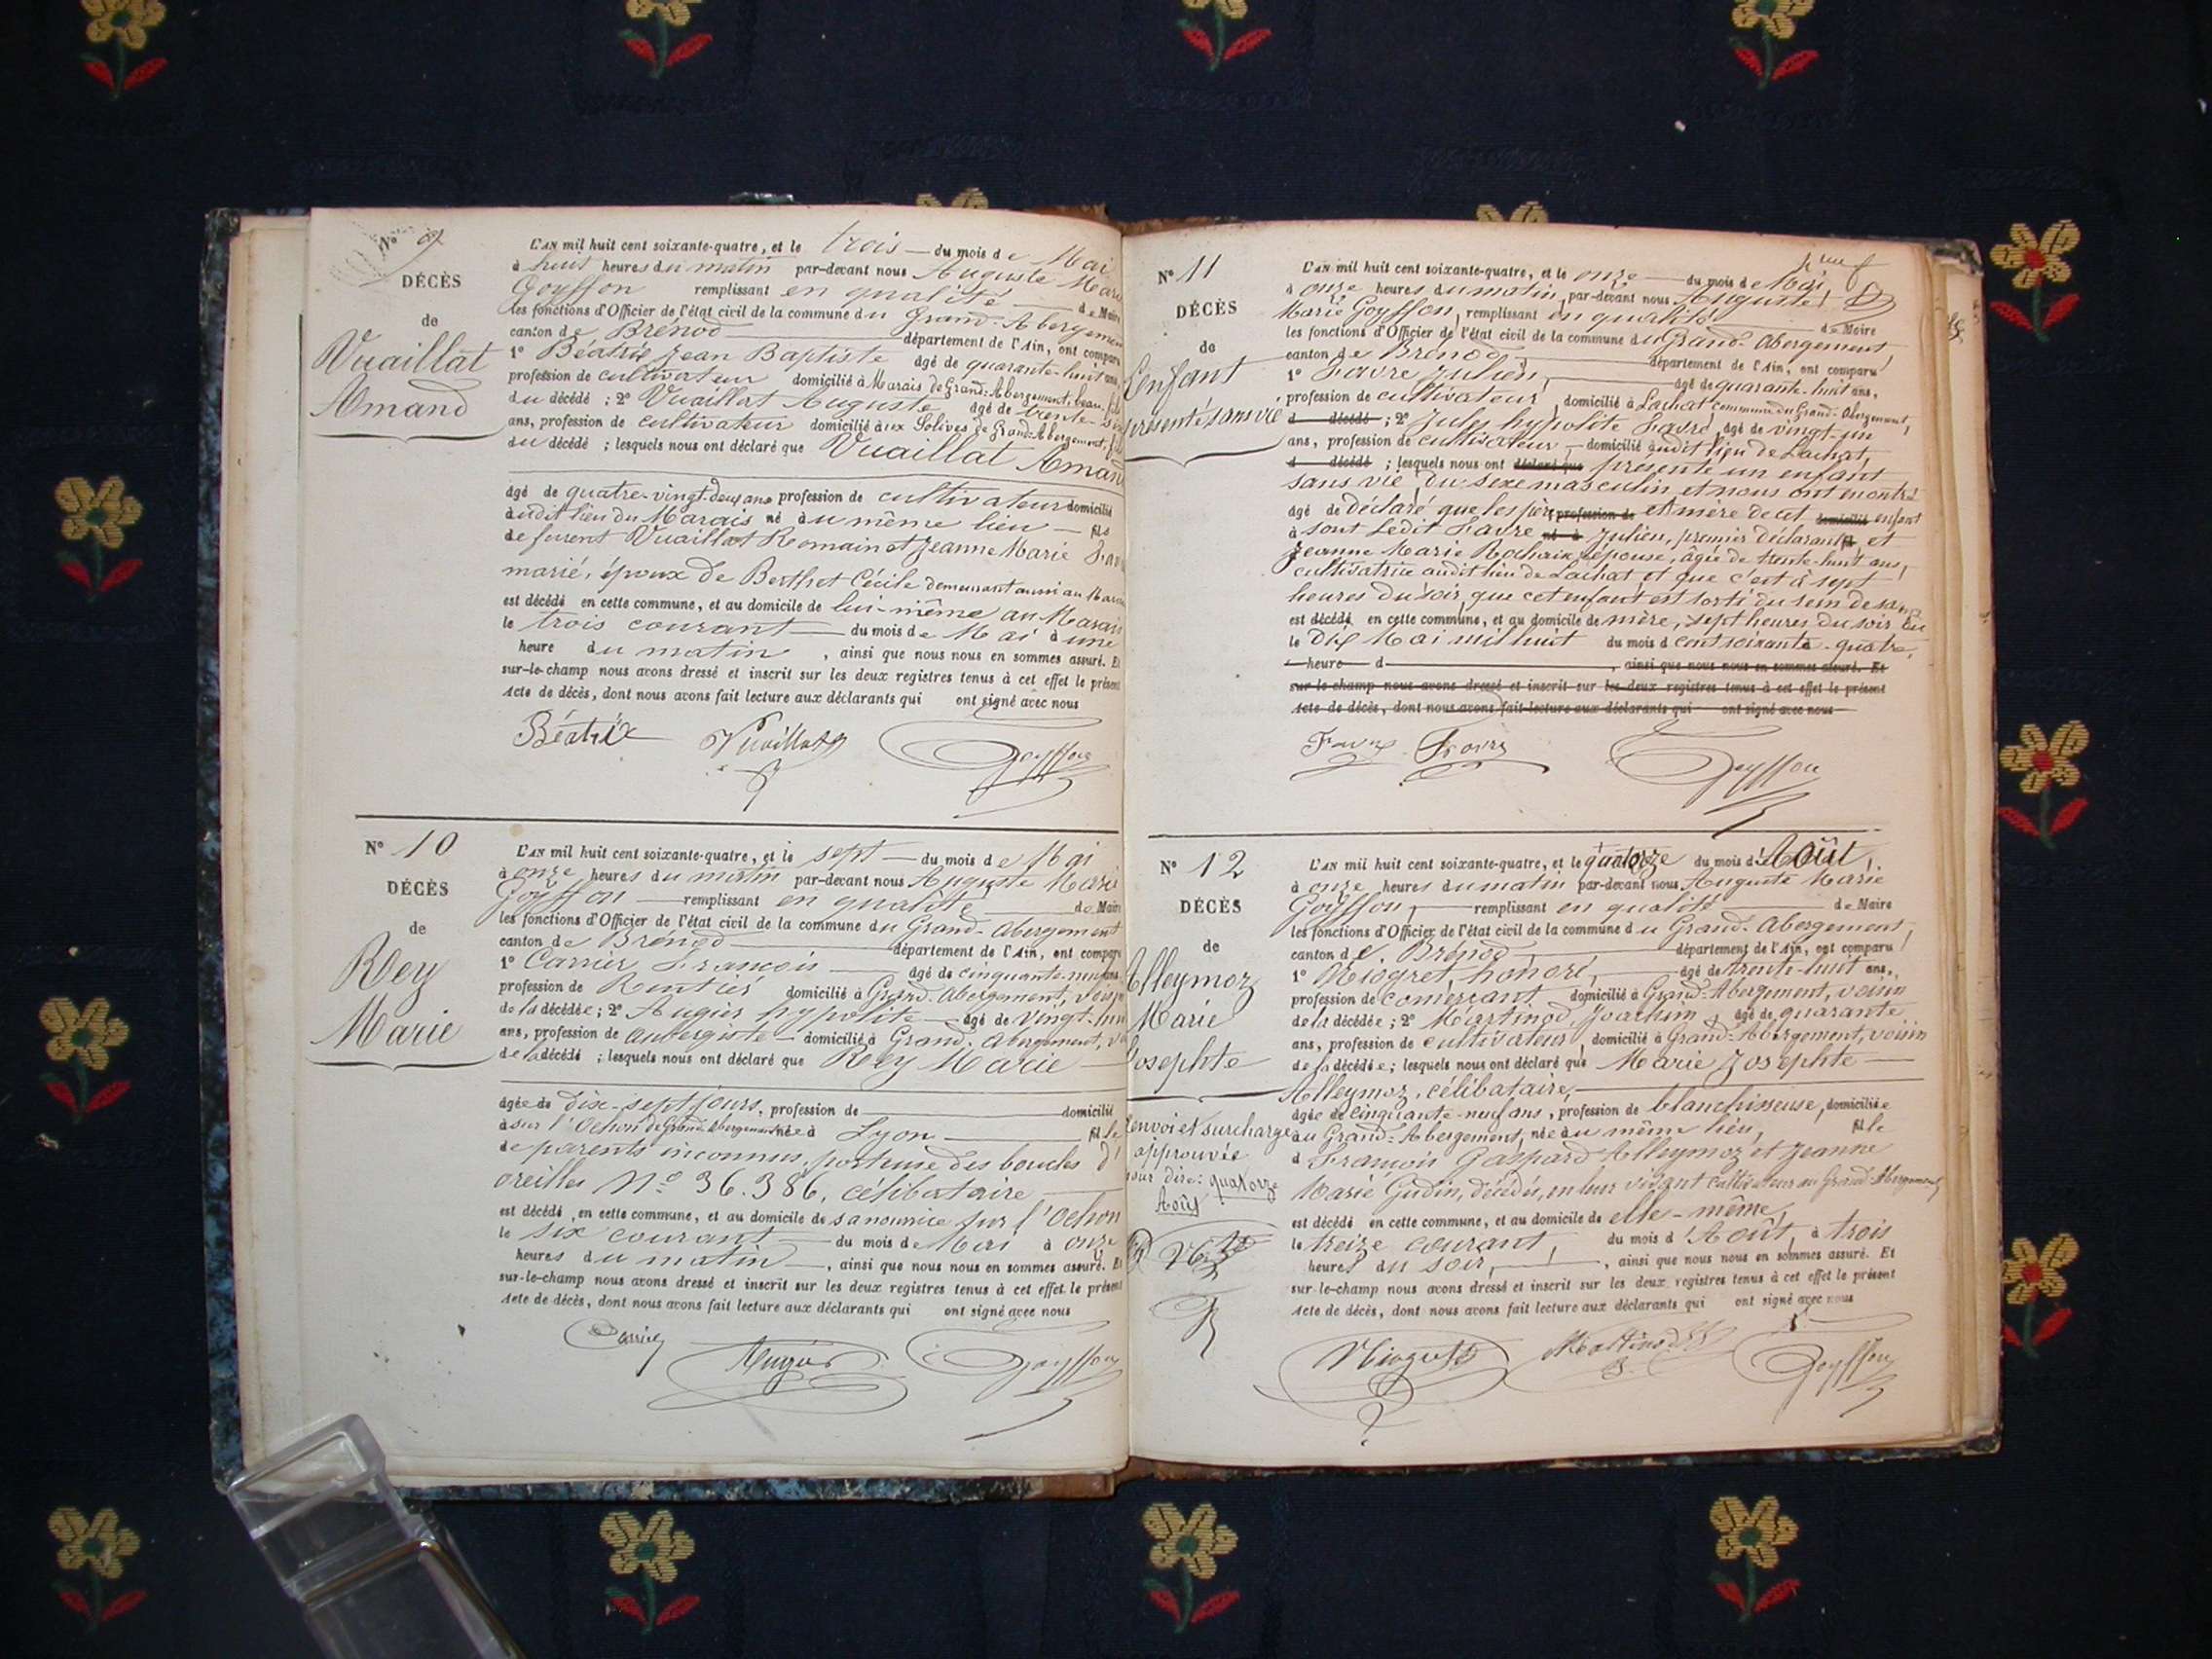 N° 9
DÉCÈS
de
Vuaillat
Amand
L'AN mil huit cent soixante-quatre, et le trois du mois de Mai
à huit heures du matin par-devant nous Auguste Marie
Goyffon remplissant en qualité de Maire
les fonctions d'Officier de l'état civil de la commune du Grand-Abergement
canton de Brénod département de l'Ain, ont comparu
1° Béatrix Jean Baptiste âgé de quarante-huit ans,
profession de cultivateur domicilié à Marais de Grand-Abergement, beau-fils
du décédé ; 2° Vuaillat Auguste âgé de trente-six
ans, profession de cultivateur domicilié aux Solives de Grand-Abergement, fils
du décédé ; lesquels nous ont déclaré que Vuaillat Amand
âgé de quatre-vingt-deux ans profession de cultivateur domicilié
audit lieu du Marais né au même lieu fils
de furent Vuaillat Romain et Jeanne Marie
marié, époux de Berthet Cécile demeurant aussi au Marais
est décédé en cette commune, et au domicile de lui-même au Marais
le trois courant du mois de Mai à une
heure du matin, ainsi que nous nous en sommes assuré. Et
sur-le-champ nous avons dressé et inscrit sur les deux registres tenus à cet effet le présent
acte de décès, dont nous avons fait lecture aux déclarants qui ont signé avec nous
Béatrix Vuaillat Goyffon
N° 10
DÉCÈS
de
Rey
Marie
L'AN mil huit cent soixante-quatre, et le sept du mois de Mai
à onze heures du matin par-devant nous Auguste Marie
Goyffon remplissant en qualité de Maire
les fonctions d'Officier de l'état civil de la commune du Grand-Abergement
canton de Brénod département de l'Ain, ont comparu
1° Carrier François âgé de cinquante-neuf ans
profession de Rentier domicilié à Grand-Abergement, voisin
de la décédée ; 2° Augier hypolite âgé de vingt-huit
ans, profession de aubergiste domicilié à Grand-Abergement,
de la décédé ; lesquels nous ont déclaré que Rey Marie
âgée de dix-sept jours, profession de domicilié
à sur l'Ochon de Grand-Abergement née à Lyon fille
de parents inconnus, porteuse des boucles d'
oreilles N° 36.386, célibataire
est décédé en cette commune, et au domicile de sa nourrice sur l'Ochon
le six courant du mois de Mai à onze
heures du matin, ainsi que nous nous en sommes assuré. Et
sur-le-champ nous avons dressé et inscrit sur les deux registres tenus à cet effet le présent
acte de décès, dont nous avons fait lecture aux déclarants qui ont signé avec nous
Carrier Augier Goyffon
N° 11
DÉCÈS
de
L'enfant
présenté sans vie
L'AN mil huit cent soixante-quatre, et le onze du mois de Mai,
à onze heures du matin, par-devant nous Auguste
Marie Goyffon, remplissant en qualité de Maire
les fonctions d'Officier de l'état civil de la commune du Grand-Abergement,
canton de Brénod, département de l'Ain, ont comparu
1° Favre Julien, âgé de quarante-huit ans,
profession de cultivateur, domicilié à Lachat commune du Grand-Abergement,
d décédé ; 2° Jules hypolite Favre, âgé de vingt-un
ans, profession de cultivateur, domicilié audit lieu de Lachat,
d décédé ; lesquels nous ont déclaré que présenté un enfant
sans vie, du sexe masculin, et nous ont montré
âgé de déclaré que les père profession de et mère de cet domicilié enfant
à sont Ledit Favre né à Julien, premier déclarant, et
Jeanne Marie Rochaix, épouse, âgée de trente-huit ans,
cultivatrice audit lieu de Lachat et que c'est à sept
heures du soir, que cet enfant est sorti du sein de sa
est décédé en cette commune, et au domicile de mère, sept heures du soir du
le dix Mai mil huit du mois d cent soixante-quatre.
heure d , ainsi que nous nous en sommes assuré. Et
sur-le-champ nous avons dressé et inscrit sur les deux registres tenus à cet effet le présent
acte de décès, dont nous avons fait lecture aux déclarants qui ont signé avec nous
Favre Favre Goyffon
N° 12
DÉCÈS
de
Alleymoz
Marie
Josephte
renvoi et surcharge
approuvée
pour dire: quatorze
Août
L'AN mil huit cent soixante-quatre, et le quatorze du mois d'Août,
à onze heures du matin par-devant nous Auguste Marie
Goyffon, remplissant en qualité de Maire
les fonctions d'Officier de l'état civil de la commune du Grand-Abergement,
canton de Brénod, département de l'Ain, ont comparu
1° Niogret, honoré, âgé de trente-huit ans,
profession de comerçant domicilié à Grand-Abergement, voisin
de la décédée ; 2° Martinod, Joachim, âgé de quarante
ans, profession de cultivateur, domicilié à Grand-Abergement, voisin
de la décédée ; lesquels nous ont déclaré que Marie Josephte
Alleymoz, célibataire,
âgée de cinquante-neuf ans, profession de blanchisseuse, domiciliée
au Grand-Abergement, née au même lieu, fille
d François Gaspard Alleymoz et Jeanne
Marie Gudin, décédés, en leur vivant cultivateurs au Grand-Abergement,
est décédé en cette commune, et au domicile de elle-même,
le treize courant, du mois d'Août, à trois
heures du soir, , ainsi que nous nous en sommes assuré. Et
sur-le-champ nous avons dressé et inscrit sur les deux registres tenus à cet effet le présent
acte de décès, dont nous avons fait lecture aux déclarants qui ont signé avec nous
Niogret Martinod Goyffon